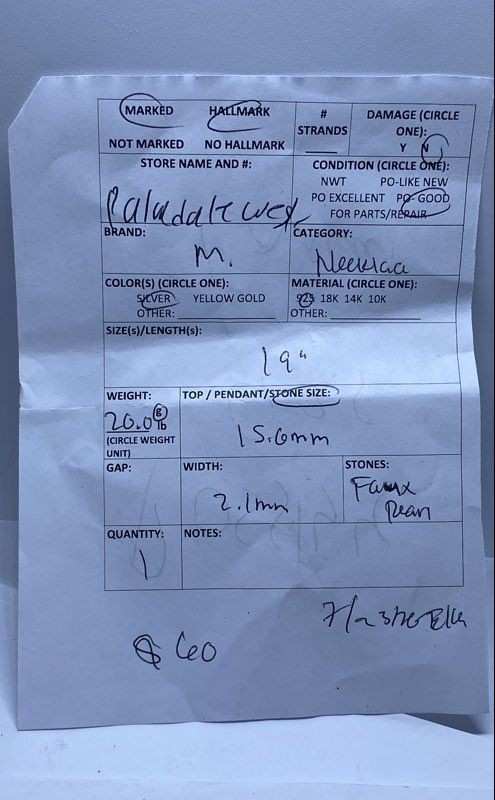 MARKED HALLMARK
NOT MARKED NO HALLMARK
# STRANDS
DAMAGE (CIRCLE ONE):
Y N
STORE NAME AND #:
Palmdale West
CONDITION (CIRCLE ONE):
NWT PO-LIKE NEW
PO EXCELLENT PO- GOOD
FOR PARTS/REPAIR
BRAND:
M.
CATEGORY:
COLOR(S) (CIRCLE ONE):
SILVER YELLOW GOLD
OTHER:
MATERIAL (CIRCLE ONE):
925 18K 14K 10K
OTHER:
SIZE(s)/LENGTH(s):
19"
WEIGHT:
20.0 g
lb
(CIRCLE WEIGHT
UNIT)
TOP / PENDANT/STONE SIZE:
15.6mm
GAP:
WIDTH:
2.1mm
STONES:
Faux
QUANTITY:
1
NOTES:
$ 60